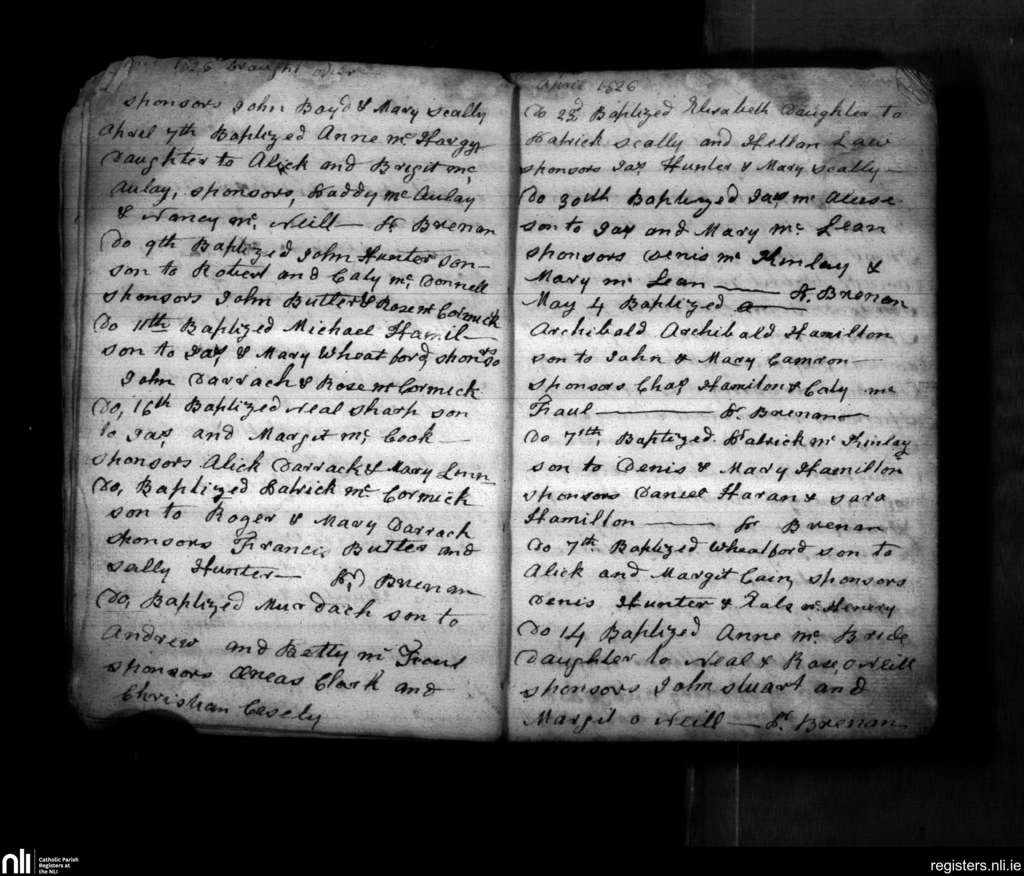 1826 brought over
sponsors John Boyd & Mary Scally
April 7th Baptized Anne Mc Hargy
Daughter to Alick and Brigit Mc
Aulay, sponsors, Paddy Mc Aulay
& Nancy Mc Neill — Pr Brenan
Do 9th Baptized John Hunter son —
son to Robert and Caty Mc Donnell
sponsors John Butler & Rose Mc Cormick
Do 11th Baptized Michael Hamil —
son to Jas & Mary Wheatford, sponsors
John Darrach & Rose Mc Cormick
Do, 16th Baptized Neal Sharp son
to Jas and Margit Mc Cook —
sponsors Alick Darrack & Mary Linn
Do, Baptized Patrick Mc Cormick
son to Roger & Mary Darrach
sponsors Francis Butler and
Sally Hunter — Pr Brenan
Do, Baptized Murdach son to
Andrew and Betty Mc
sponsors Æneas Clark and
Christian Casely
April 1826
Do 23d, Baptized Elisabeth Daughter to
Patrick Scally and Hellen Law
sponsors Jas Hunter & Mary Scally —
Do 30th Baptized Jas Mc
son to Jas and Mary Mc Lean
sponsors Denis Mc Kinlay &
Mary Mc Lean — Pr Brenan
May 4 Baptized a —
Archibald Archibald Hamilton
son to John & Mary Camron —
sponsors Chas Hamilton & Caty Mc
Faul — Pr Brenan
Do 7th, Baptized Patrick Mc Kinlay
son to Denis & Mary Hamilton
sponsors Daniel Haran & Sara
Hamilton — Pr Brenan
Do 7th. Baptized Wheatford son to
Alick and Margit Cain, sponsors
Denis Hunter & Mc Henery
Do 14 Baptized Anne Mc Bride
Daughter to Neal & Rose O Neill
sponsors John Stuart and
Margit O Neill — Pr Brenan
nli Catholic Parish
Registers at
the NLI
registers.nli.ie